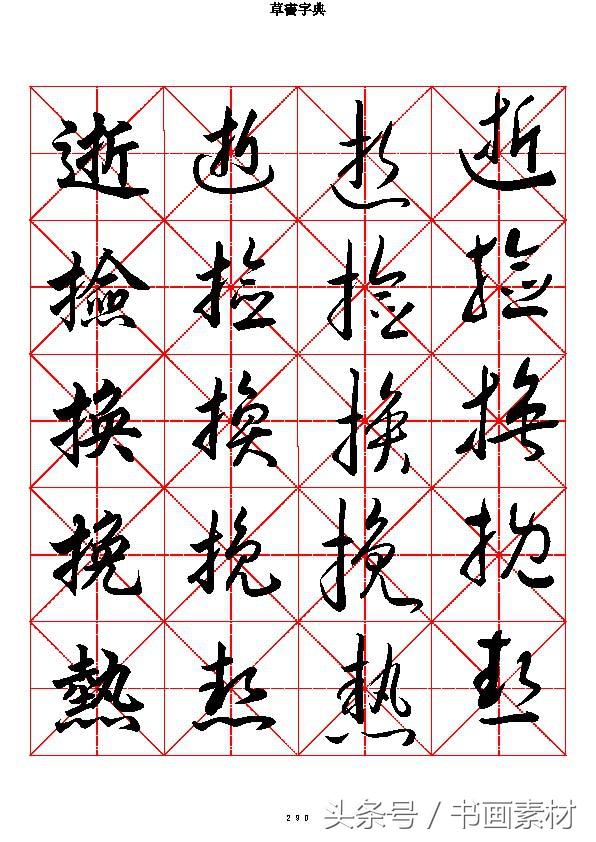 草書字典
逝 逝 逝 逝
撿 撿 撿 撿
換 換 換 換
挽 挽 挽 挽
熱 熱 熱 熱
290
头条号 / 书画素材